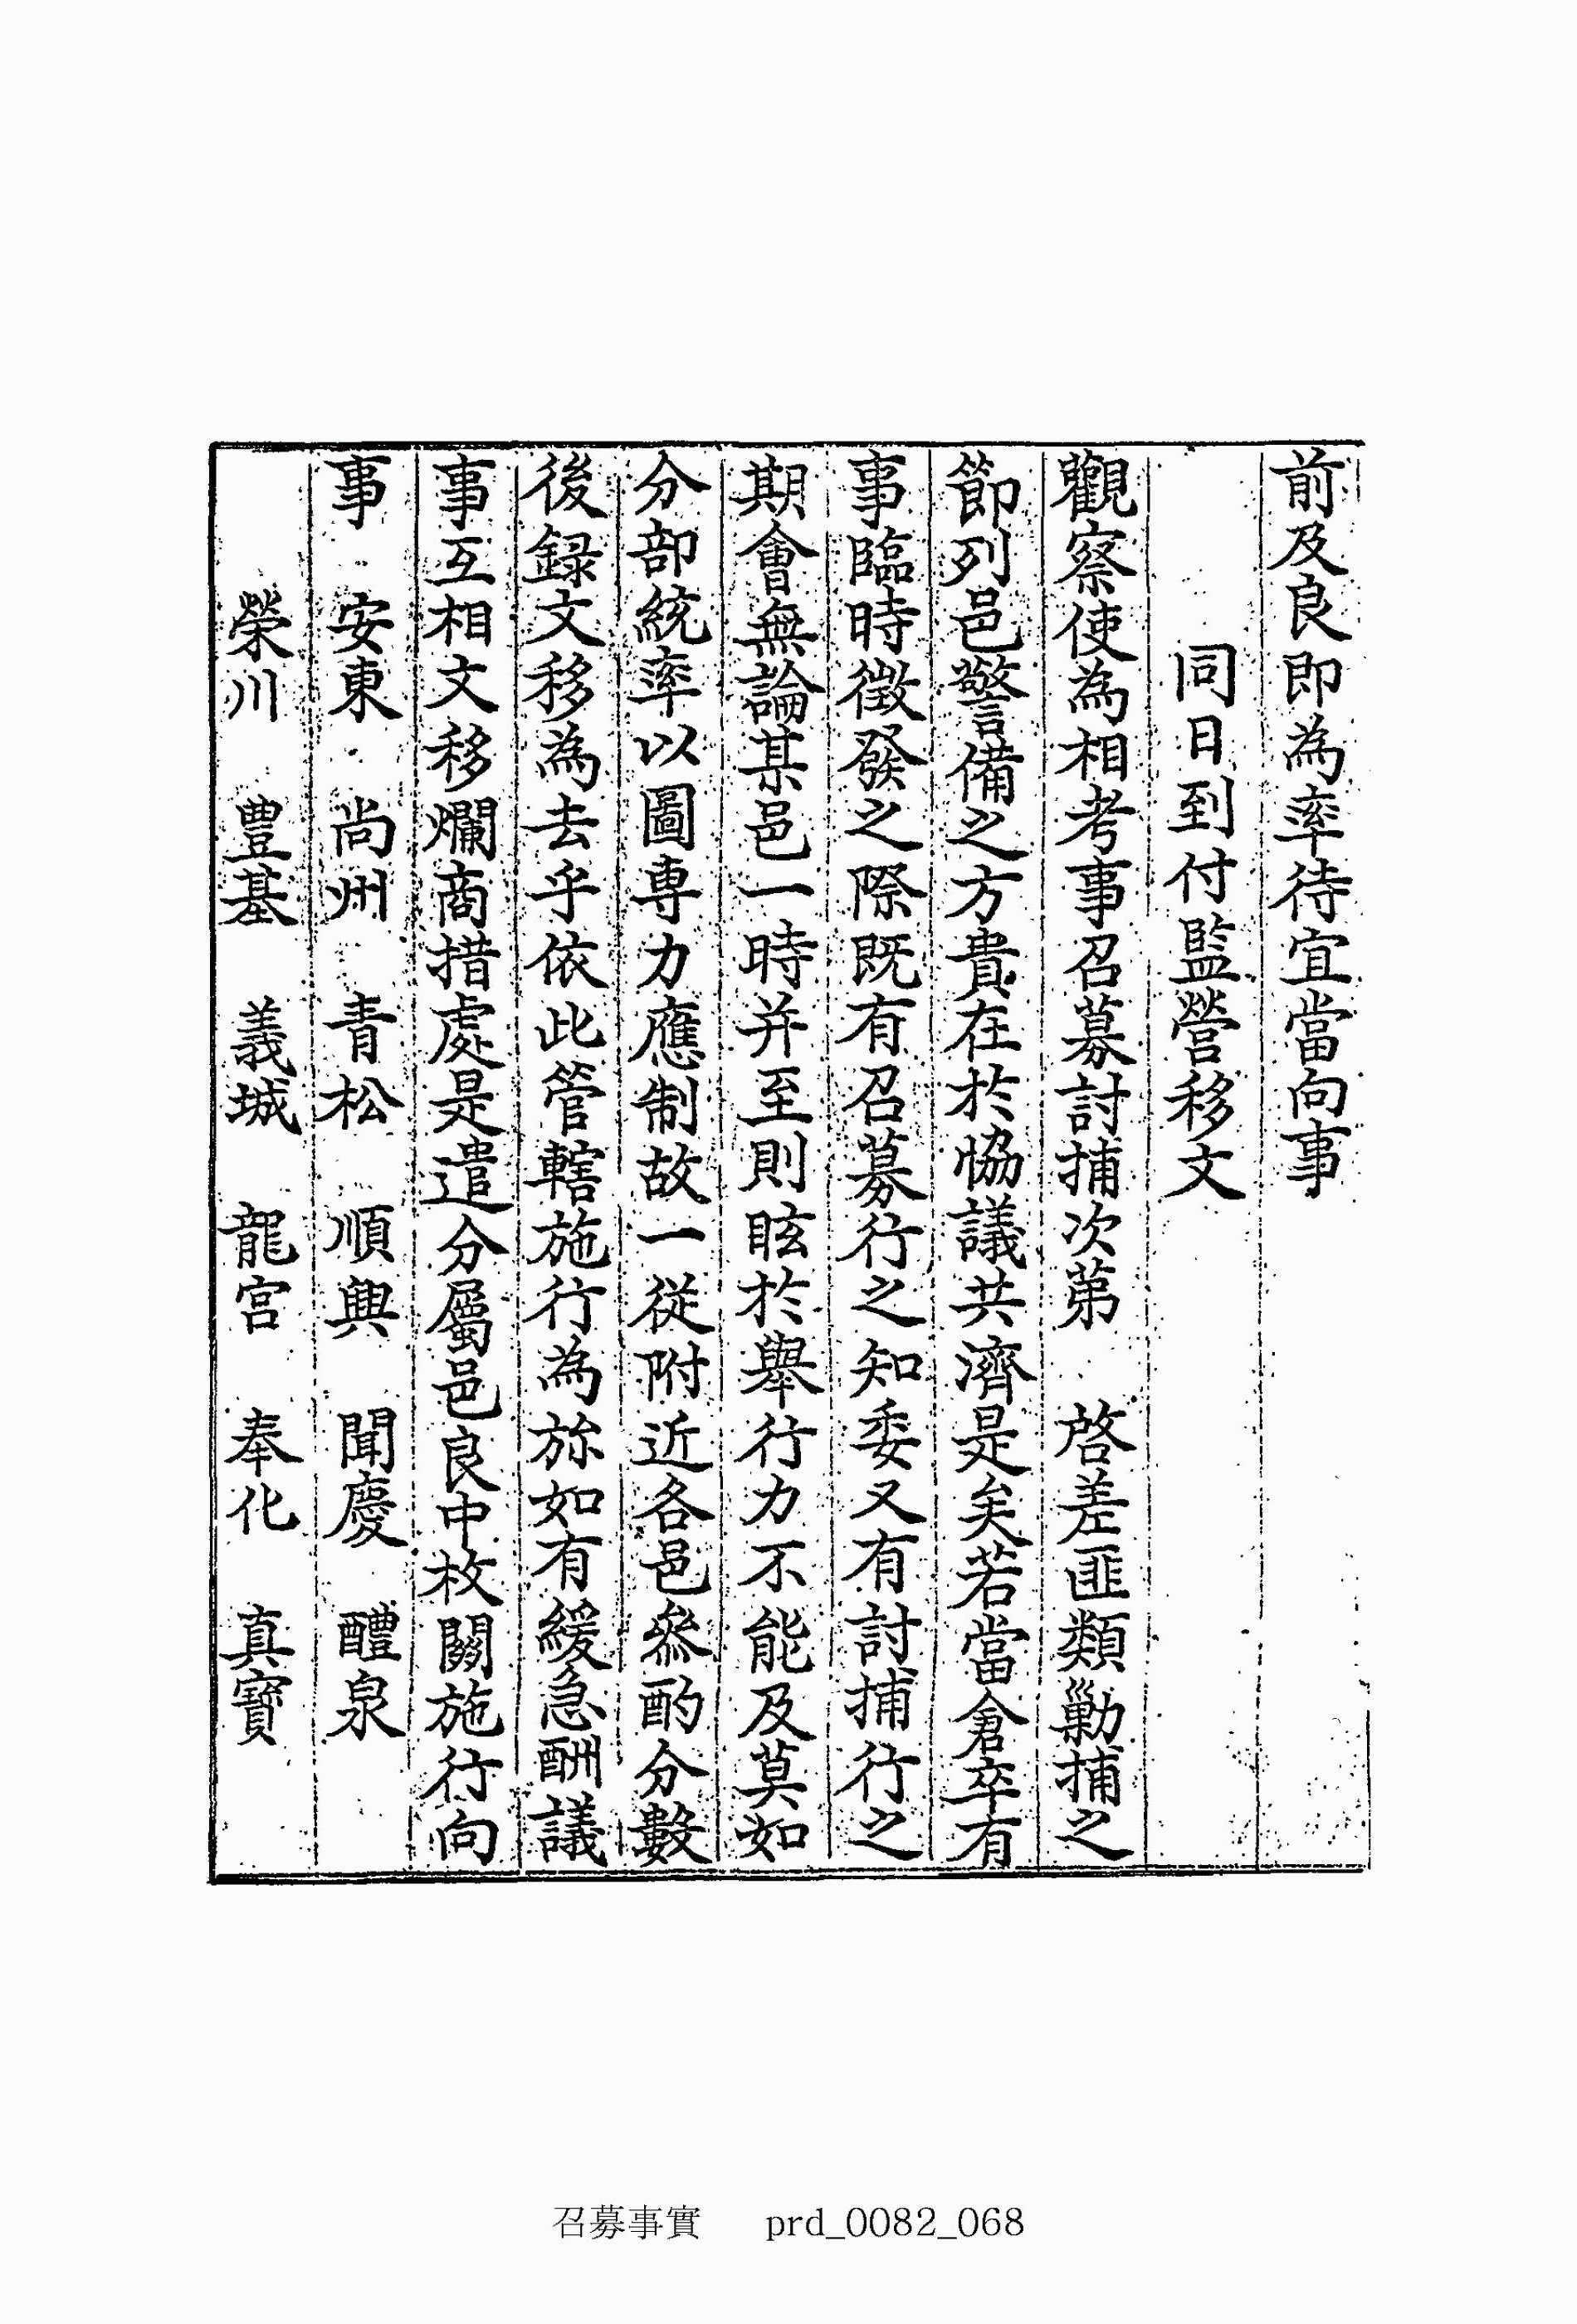 前及良即為率待宜當向事
同日到付監營移文
觀察使為相考事召募討捕次第 啓差匪類勦捕之
節列邑警備之方貴在於恊議共濟是矣若當倉卒有
事臨時徵發之際既有召募行之知委又有討捕行之
期會無論某邑一時并至則眩於舉行力不能及莫如
分部統率以圖專力應制故一從附近各邑叅酌分數
後録文移為去乎依此管轄施行為旀如有緩急酬議
事互相文移爛商措處是遣分屬邑良中枚關施行向
事 安東 尚州 青松 順興 聞慶 醴泉
榮川 豊基 義城 龍宮 奉化 真寶
召募事實 prd_0082_068